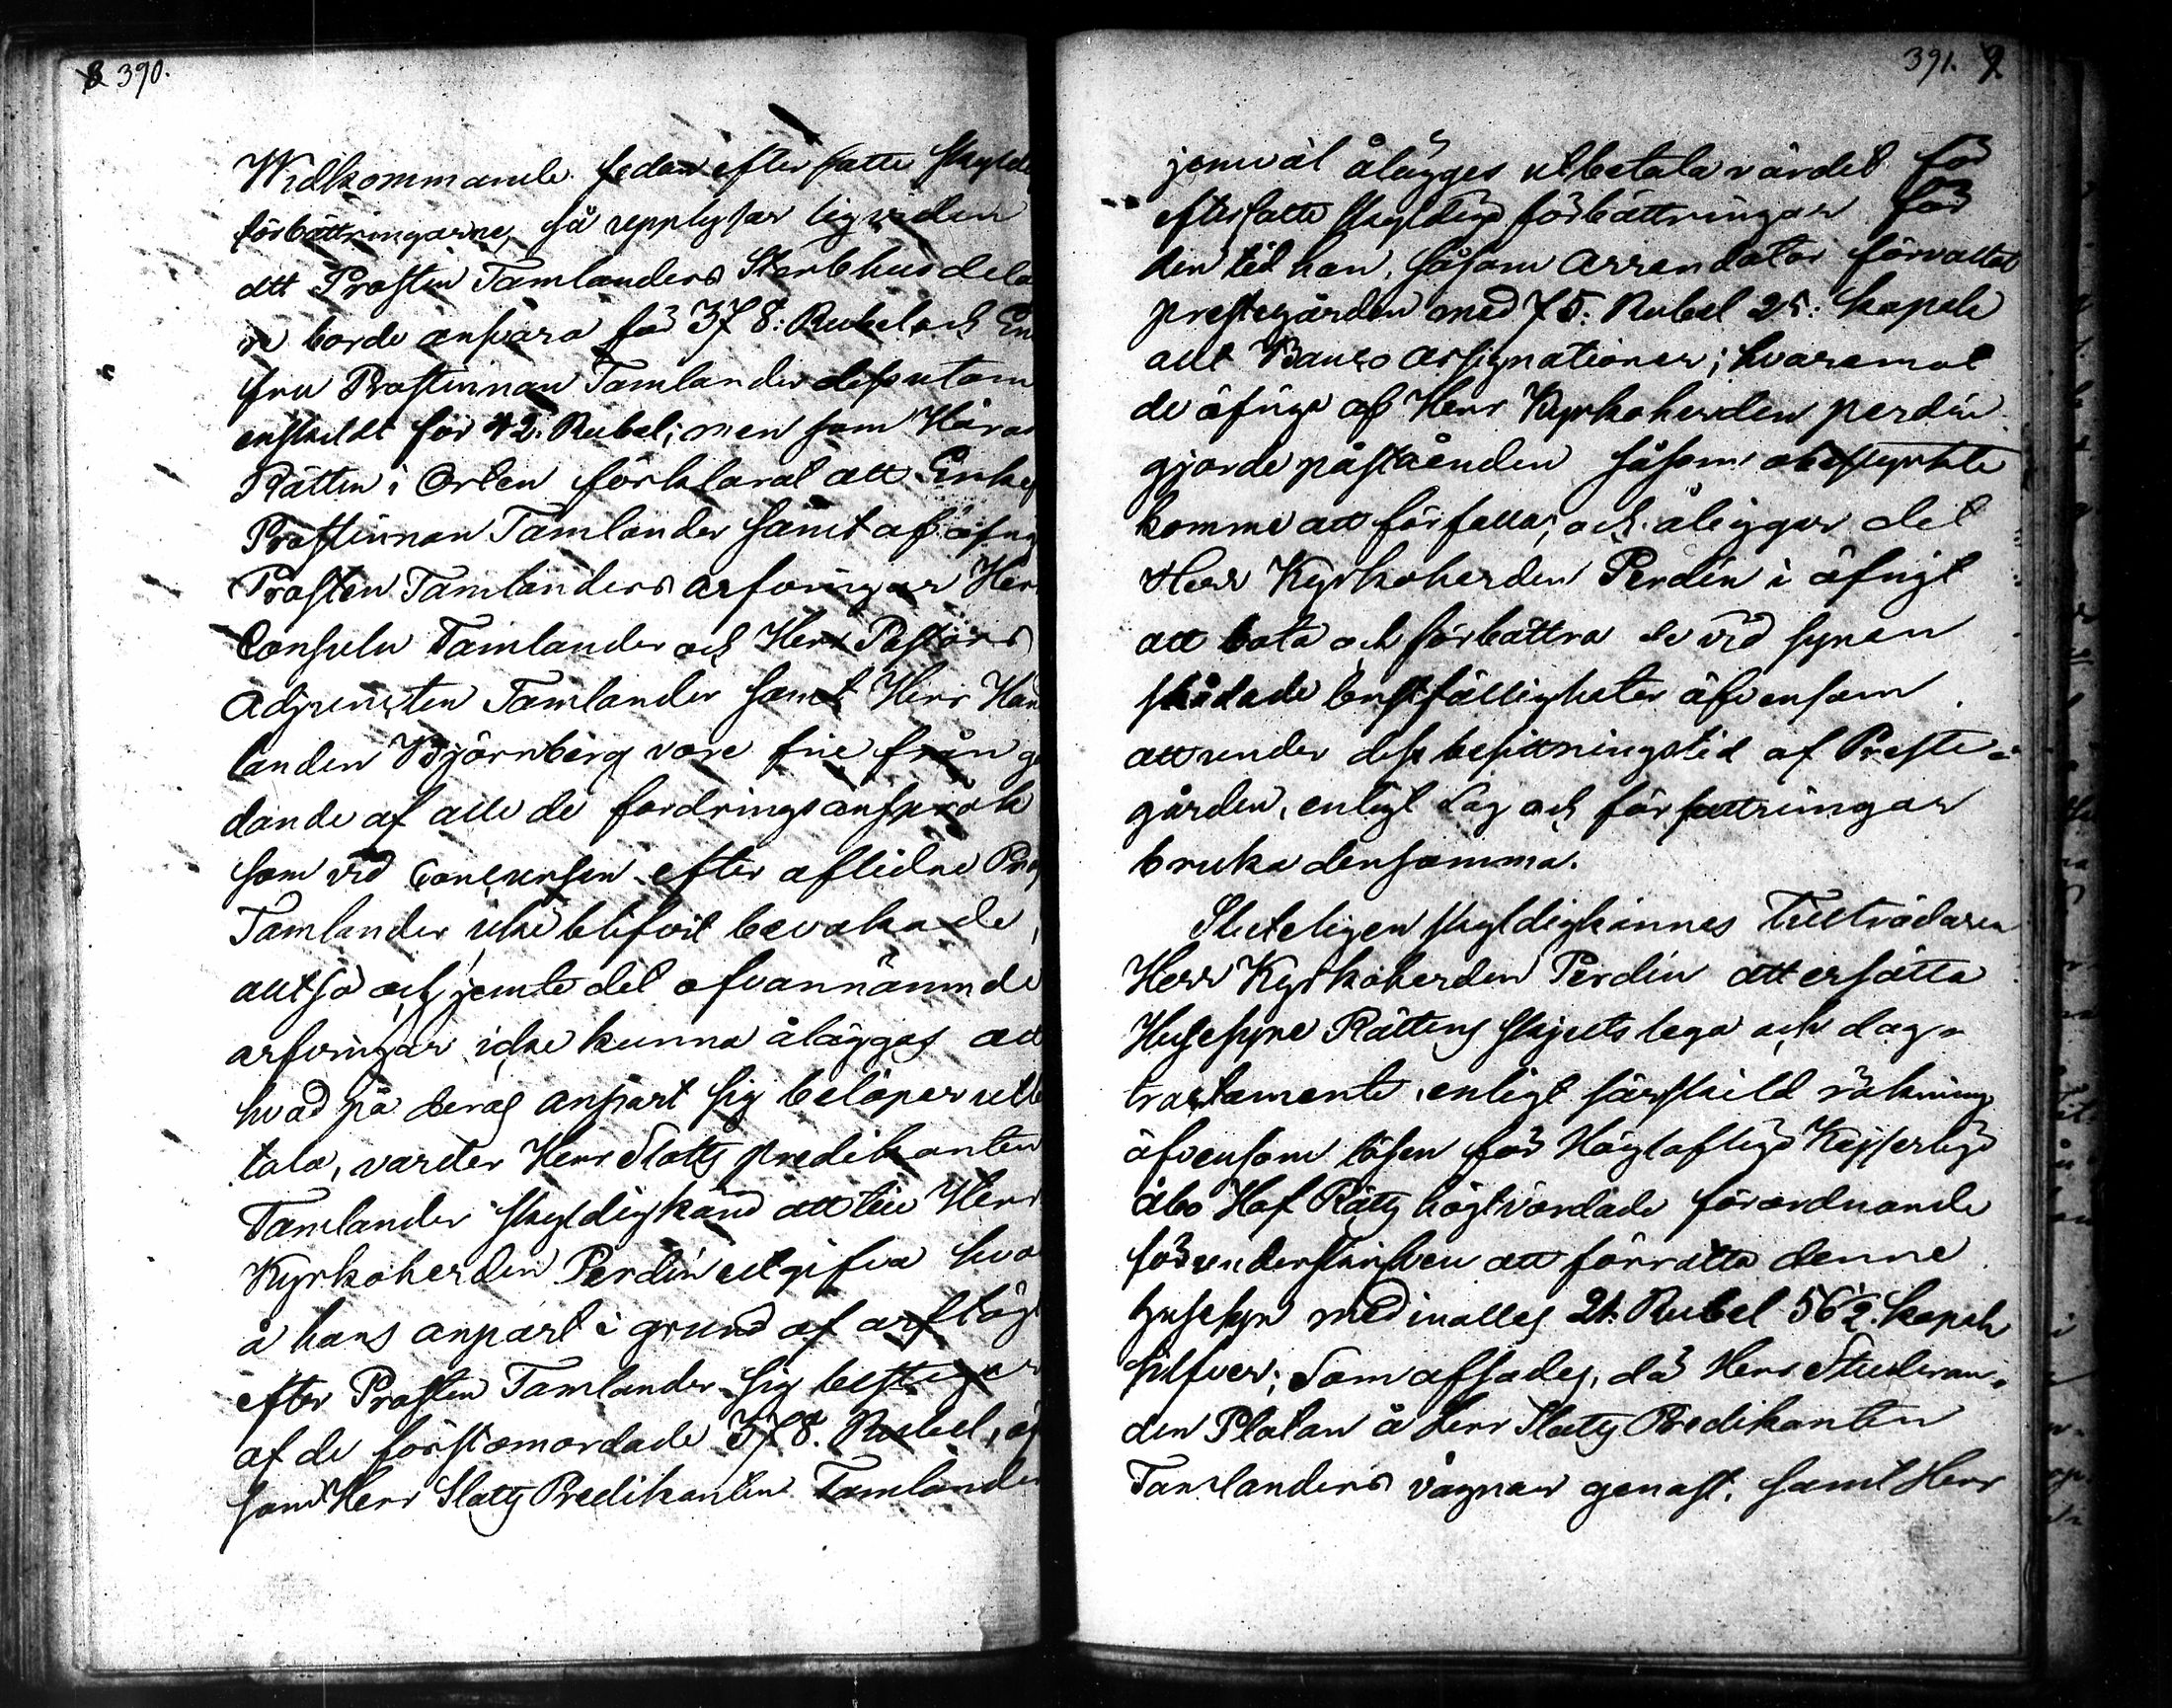 390.
Widkommande sedan efter satte skylde
förbättringarne, så upplyser sigväl
att Prosten Tamlanders Sterbhus dela
re borde ansvara för 378: Rubel och En
fru Prostinnan Tamlander dessutom
enskildt för 42. Rubel; men som Härads
Rätten i Orten förklarat att Enke
Prostinnan Tamlander samt af öfrig
Prosten Tamlanders arfvingar Herr
Consuln Tamlander och Herr Pastors
Adjuncten Tamlander samt Herr Han
landen Björnberg vore frie från g
dande af alle de fordringsanspråk
som vid Concursen efter aflidne Pro
Tamlander icke blifvit bevakade,
alltså och jemte det ofvannämnde
arfvingar icke kunna åläggas att
hvad på deras anpart sig belöper utbe
tala, varder Herr Slotts predikanten
Tamlander skyldigkänd att till Herr
Kyrkoherden Perdén utgifva hva
å hans anpart i grund af arflag
efter Prosten Tamlander sig bestiger
af de förstomordade 378. Rubel, äf
som Herr Slotts Predikanten Tamlander
391.
jemväl ålägges utbetala värdet för
eftersatte skyldige förbättringar för
den tid han, såsom Arrendator förvaltat
prestegården med 75: Rubel 25: kopek
allt Banco Assignationer; hvaremot
de öfrige af Herr Kyrkoherden perdén
gjorde påståenden såsom obestyrkte
komma att förfalla; och åligger det
Herr Kyrkoherden Perdén i öfrigt
att bota och förbättra de vid synen
skådade bristfälligheter äfvensom
att under dess besittningstid af Preste-
gården, enligt Lag och författningar
bruka densamma.
Sluteligen skyldigkännes Tillträdaren
Herr Kyrkoherden Perdén att ersätta
Husesyne Rättens skjuts lega och dag-
tractamente, enligt särskild räkning
äfvensom lösen för Högloflige Kejserlige
Åbo Hof Rätts högtvördade förordnande
för underskrifven att förrätta denne
husesyn med inalles 21. Rubel 56 1/2. kopek
silfver; Som afsades, då Herr Studeran-
den Platan å Herr Slotts Predikanten
Tamlanders vägnar genast, samt Herr